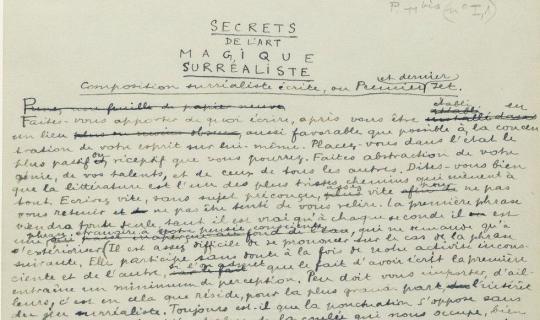 P. 11 bis (n° I,)
SECRETS
DE L'ART
MAGIQUE
SURRÉALISTE
et dernier
Composition surréaliste écrite, ou Premier jet.
Prenez une feuille de papier
établi en
Faites-vous apporter de quoi écrire, après vous être
un lieu plus ou moins obscur, aussi favorable que possible à la concen
tration de votre esprit sur lui-même. Placez-vous dans l'état le
plus passif, ou réceptif que vous pourrez. Faites abstraction de votre
génie, de vos talents, et de ceux de tous les autres. Dites-vous bien
que la littérature est l'un des plus tristes chemins qui mènent à
tout. Ecrivez vite, sans sujet préconçu, assez vite pour ne pas
vous retenir et ne pas être tenté de vous relire. La première phrase
viendra toute seule tant il est vrai qu'à chaque seconde il est
une phrase étrangère à notre pensée consciente, qui ne demande qu'à
s'extérioriser. Il est assez difficile de se prononcer sur le cas de la phrase
suivante, Elle participe sans doute à la fois de notre activité incons-
ciente et de l'autre, si l'on admet que le fait d'avoir écrit la première
entraîne un minimum de perception. Peu doit vous importer, d'ail-
leurs, c'est en cela que réside, pour la plus grande part, l'intérêt
du jeu surréaliste. Toujours est-il que la ponctuation s'oppose sans
de la coulée qui nous occupe, bien